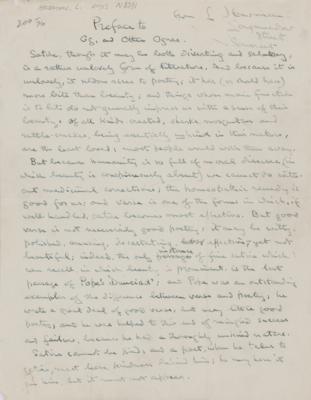 Preface to
Og, and Other Ogres.
Satire, though it may be both diverting and salutary,
is a rather unlovely form of literature. And because it is
unlovely, it seldom rises to poetry; it has (or should have)
more bite than beauty, and things whose main function
is to bite do not generally impress us with a sense of their
beauty. Of all kinds created, sharks mosquitoes and
rattle-snakes, being essentially unkind in their nature,
are the least loved; most people would wish them away.
But because humanity is so full of moral diseases, (in
which beauty is conspicuously absent) we cannot do with-
out medicinal corrections; the homoeopathic remedy is
good for us; and verse is one of the forms in which, if
well handled, satire becomes most effective. But good
verse is not necessarily good poetry; it may be witty,
polished, amusing, devastating, effective, yet not
beautiful; indeed, the only instance of pure satire which I
can recall in which beauty is prominent, is the last
passage of Pope's 'Dunciad'; and Pope was an outstanding
exemplar of the difference between verse and poetry; he
wrote a great deal of good verse, but very little good
poetry; and he was helped to this end of mingled success
and failure, because he had a thoroughly unkind nature.
Satire cannot be kind; and a poet, when he takes to
satire, must leave kindness behind him; he may have it
but it must not appear.